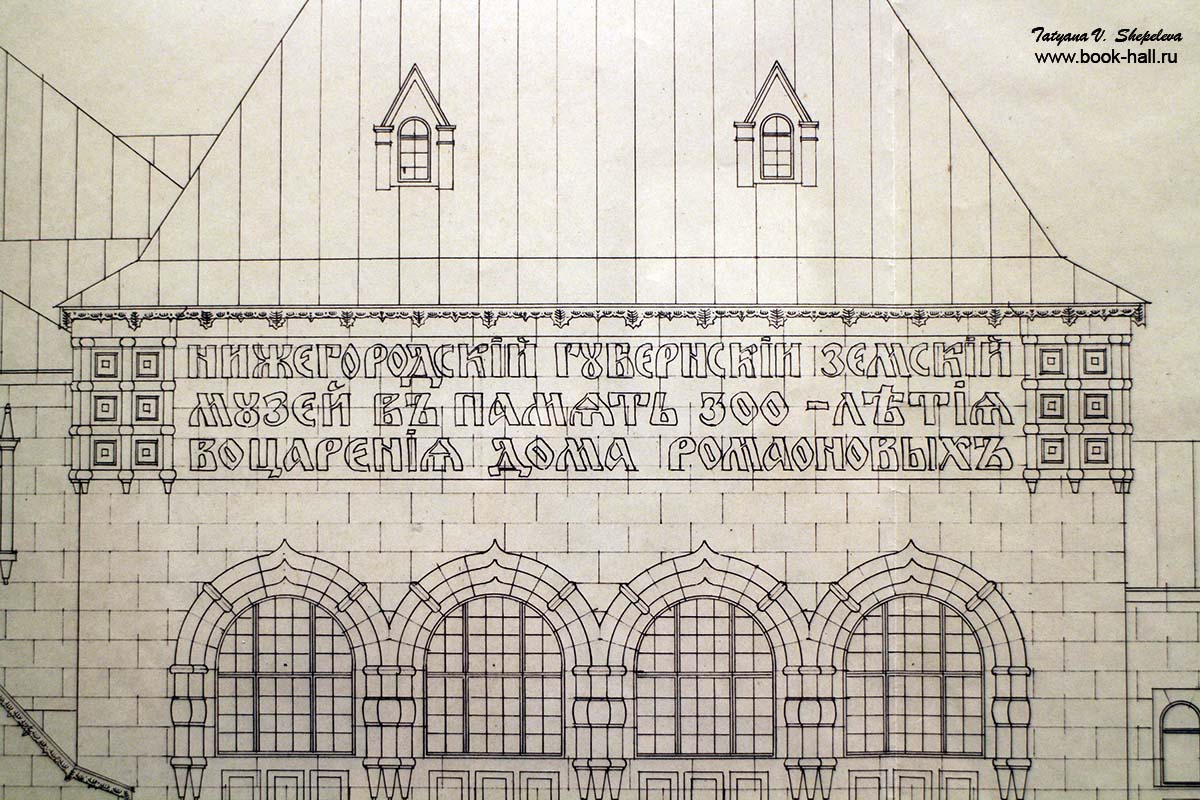 Tatyana V. Shepeleva
www.book-hall.ru
НИЖЕГОРОДСКІЙ ГꙊБЕРНСКІИ ЗЕМСКІЙ
МꙊЗЕЙ ВЪ ПАМѦТЬ 300-ЛѢТІѦ
ВОЦАРЕНІѦ ДОМА РОМАОНОВЫХЪ